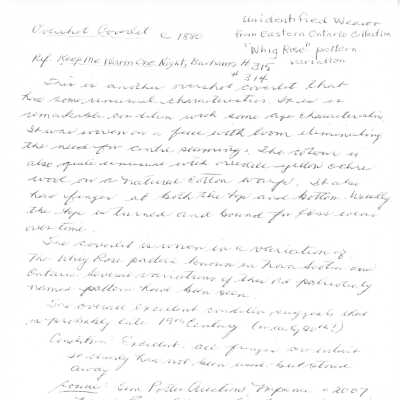 Overshot Coverlet c 1880
Unidentified Weaver
from Eastern Ontario Collection
"Whig Rose" pattern
variation
Ref. Keep Me Warm One Night, Burnhams # 315
# 314
This is another overshot coverlet that
has some unusual characteristics. It is in
remarkable condition with some age characteristics.
It was woven on a full width loom eliminating
the need for centre seaming. The colour is
also quite unusual with overdale yellow ochre
wool on a natural cotton warp. It also
has fringes at both the top and bottom. Usually
the top is turned and bound for less wear
over time.
The coverlet is woven in a variation of
The Whig Rose pattern known in Nova Scotia and
Ontario. Several variations of this old
named pattern have been seen.
The overall excellent condition suggests that
is probably late 19th Century (or early 20th!)
Condition: Excellent. all fringes are intact
so clearly has not been used but stored
away
Source: Potter Auctions - 2007